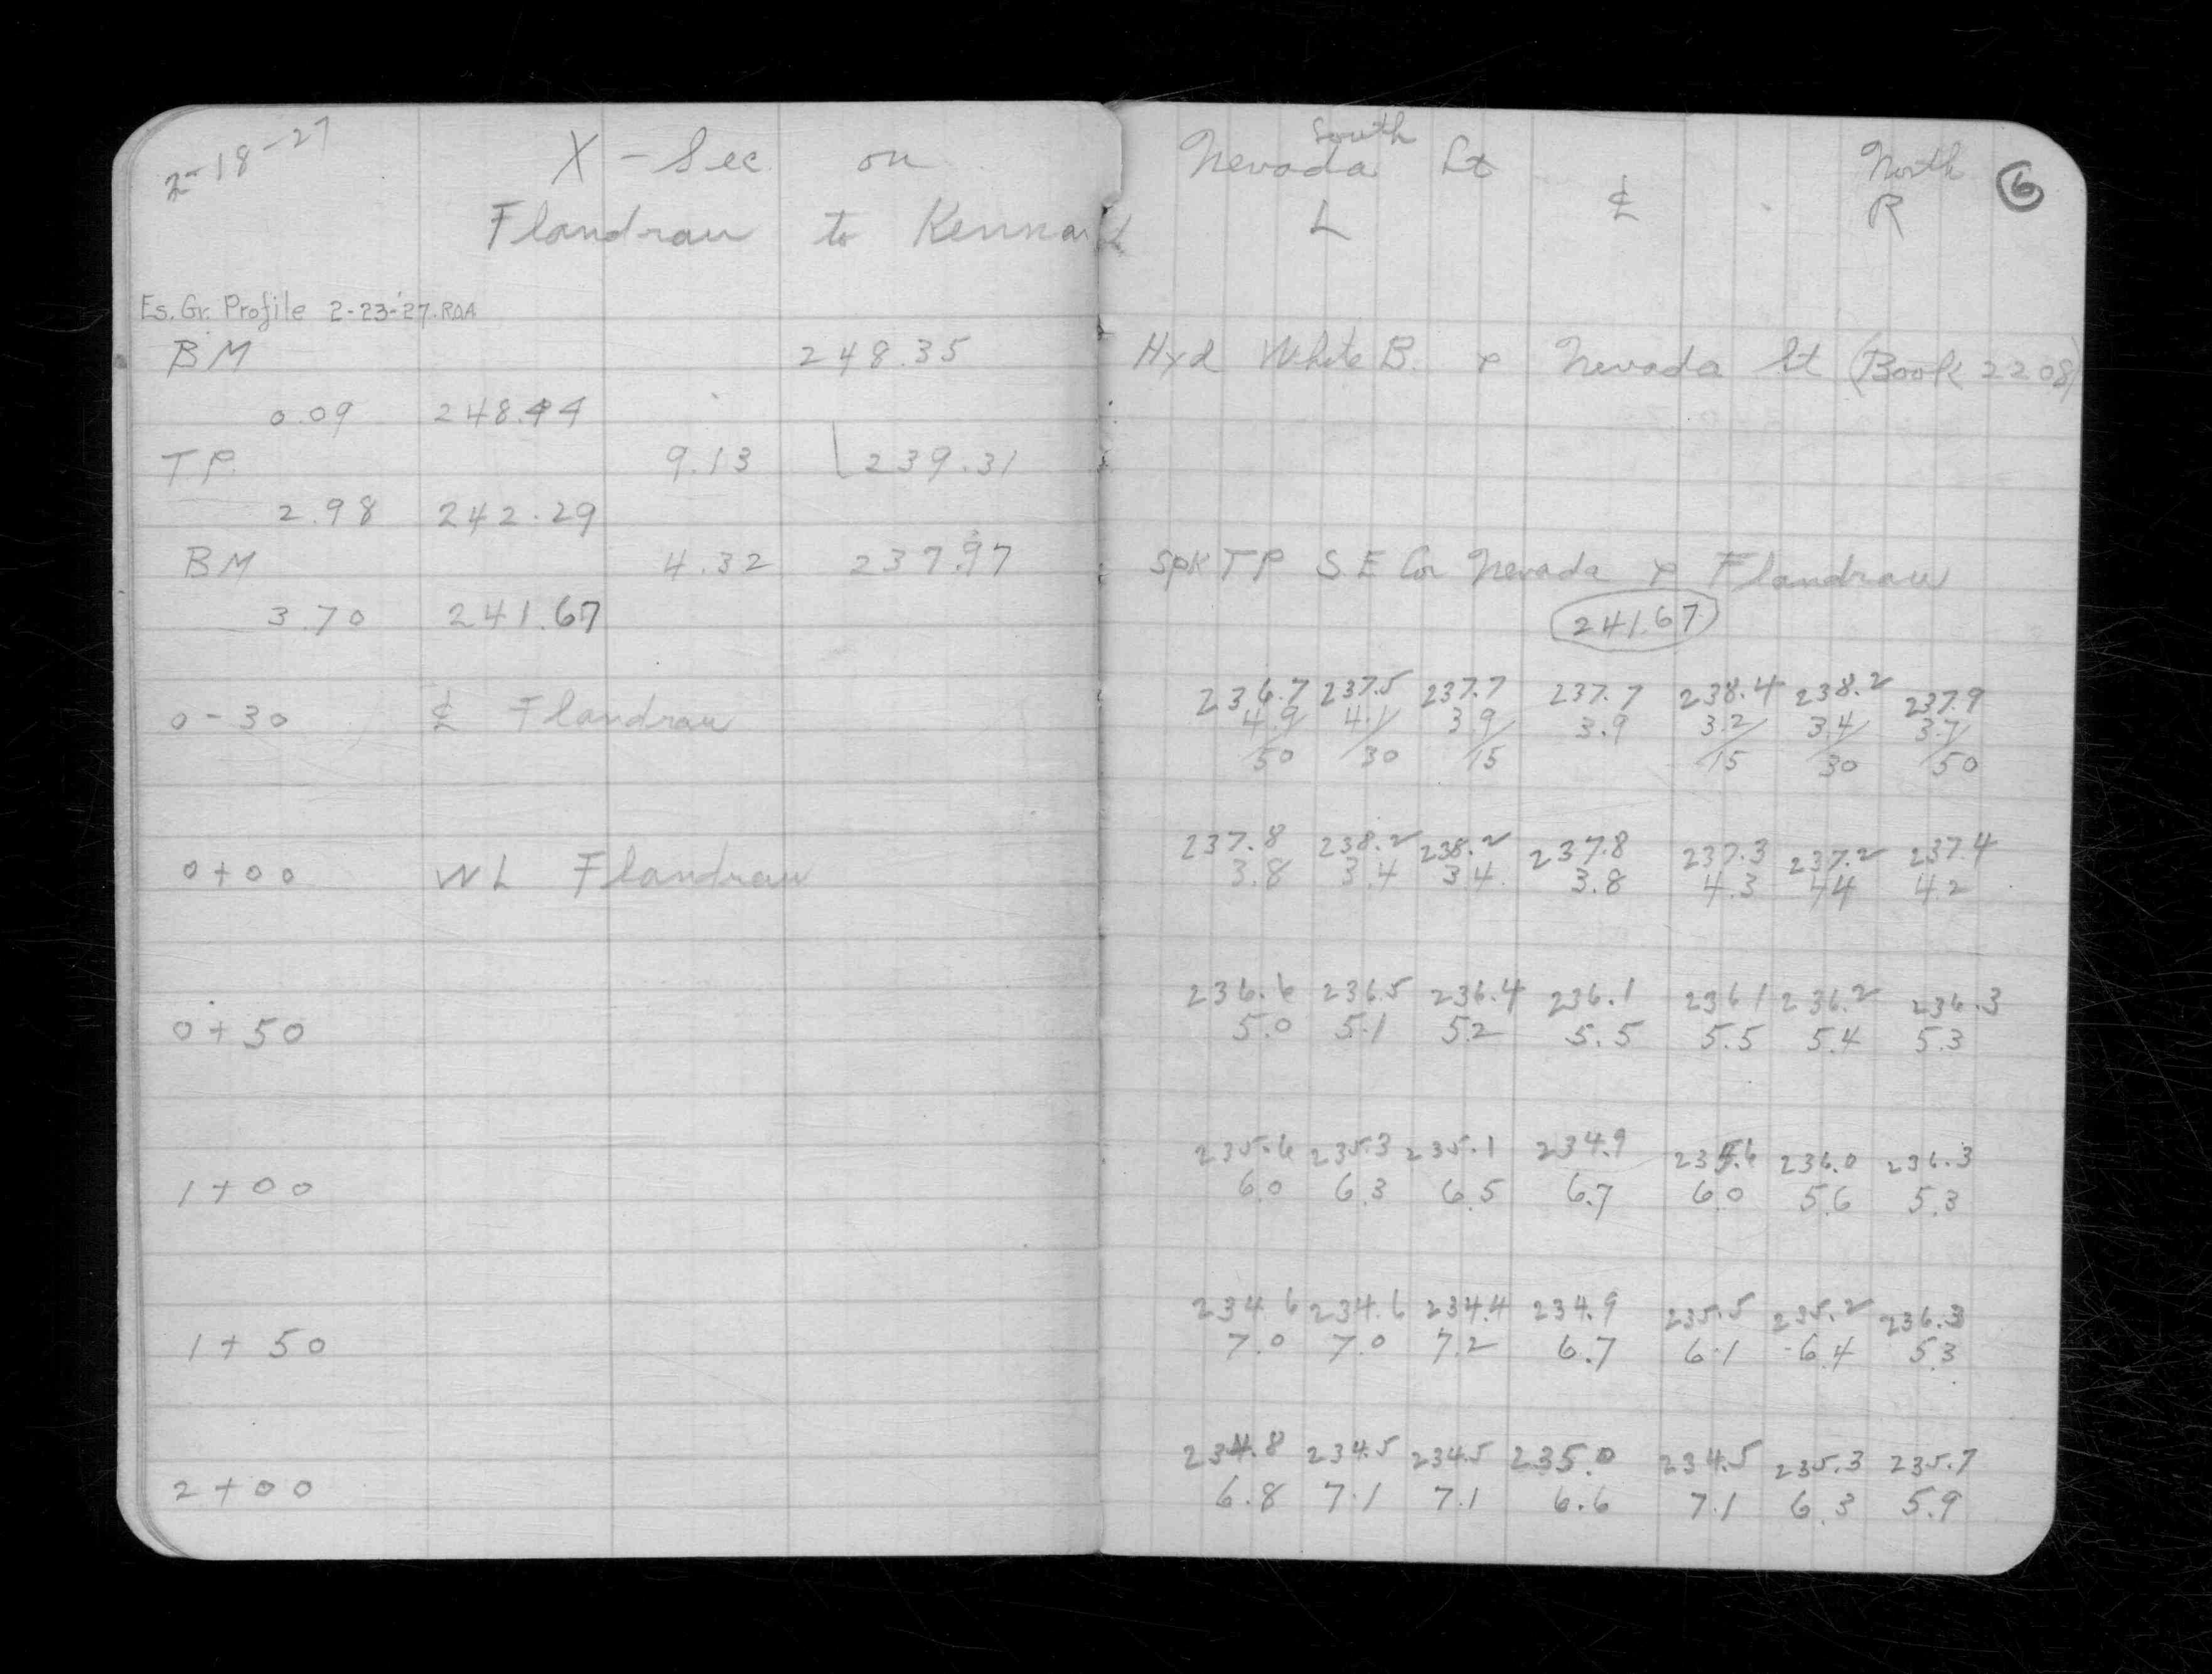 2-18-27 X-Sec on Nevada St South ℄ North ⑥
Flandrau to Kennard L R
Es. Gr. Profile 2-23-'27. ROA
BM 248.35 Hyd White B. & Nevada St (Book 2208)
0.09 248.44
TP 9.13 239.31
2.98 242.29
BM 4.32 237.97 Spk TP S.E Cor Nevada & Flandrau
3.70 241.67 241.67
236.7 237.5 237.7 237.7 238.4 238.2 237.9
0-30 ℄ Flandrau 4.9/ 4.1/ 3.9/ 3.9 3.2/ 3.4/ 3.7/
50 30 15 15 30 50
237.8 238.2 238.2 237.8 237.3 237.2 237.4
0+00 WL Flandrau 3.8 3.4 3.4 3.8 4.3 4.4 4.2
236.6 236.5 236.4 236.1 236.1 236.2 236.3
0+50 5.0 5.1 5.2 5.5 5.5 5.4 5.3
235.6 235.3 235.1 234.9 235.6 236.0 236.3
1+00 6.0 6.3 6.5 6.7 6.0 5.6 5.3
234.6 234.6 234.4 234.9 235.5 235.2 236.3
1+50 7.0 7.0 7.2 6.7 6.1 6.4 5.3
234.8 234.5 234.5 235.0 234.5 235.3 235.7
2+00 6.8 7.1 7.1 6.6 7.1 6.3 5.9